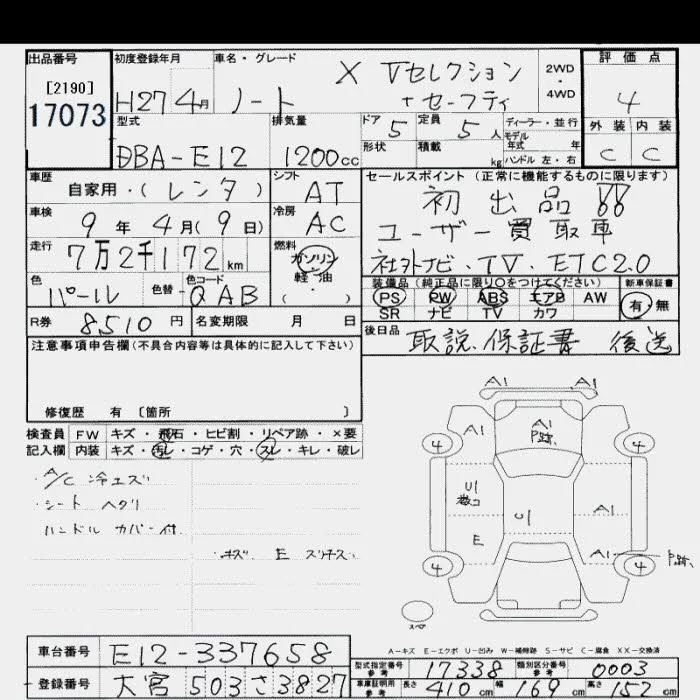 出品番号
[2190]
17073
初度登録年月
H27 4月
車名・グレード
ノート
X Vセレクション
+セーフティ
2WD
4WD
評価点
4
外装 内装
C C
型式
DBA-E12
排気量
1200cc
ドア 5
定員 5人
形状
積載 kg
ディーラー・並行
モデル
年式 年
ハンドル 左・右
車歴
自家用・(レンタ)
シフト
AT
車検
9年 4月(9日)
冷房
AC
走行
7万2千172km
燃料
ガソリン
軽油
( ・ )
色
パール
色替
色コード
QAB
R券 8510円
名変期限 月 日
セールスポイント(正常に機能するものに限ります)
初出品!!
ユーザー買取車
社外ナビ・TV・ETC2.0
装備品(純正品に限り○をつけてください)
PS PW ABS エアB AW
SR ナビ TV カワ
新車保証書
有・無
後日品 取説.保証書 後送
注意事項申告欄(不具合内容等は具体的に記入して下さい)
修復歴 有 〔箇所 〕
検査員 FW キズ・飛石・ヒビ割・リペア跡・×要
記入欄 内装 キズ・汚レ・コゲ・穴・スレ・キレ・破レ
・A/C 冷エズ
・シート ヘタリ
ハンドル カバー付
・キズ E スリキズ
A1 A1
A1
A1
P跡
4 4
U1
数コ
U1
A1
E
A1
P跡
4 4
スペア
A-キズ E-エクボ U-凹み W-補修跡 S-サビ C-腐食 XX-交換済
車台番号 E12-337658
登録番号 大宮 503さ3827
型式指定番号
参考
17338
類別区分番号
参考
0003
車庫証明用
参考
長さ 410cm 幅 169cm 高さ 152cm